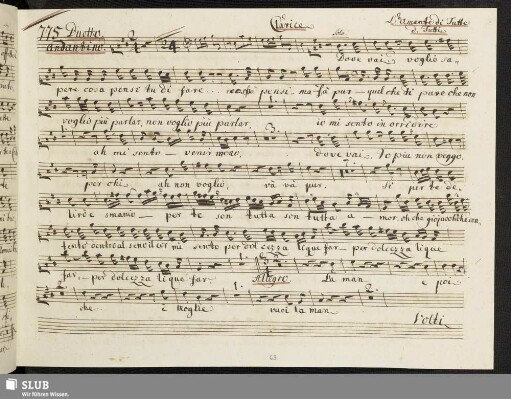 775 Duetto. Clarice L'Amante di Tutte
Andantino. Solo. di Tutti
Dove vai, voglio sa,
pere cosa pensi tu di fare... pensi ma fà pur quel che ti pare che non
voglio più parlar, non voglio più parlar, io mi sento inorridire
ah mi sento venir meno, 3. dove vai. Io più non veggo,
per chi ah non voglio, và và pur, Si per te de,
liro e smanio per te son tutta son tutta a mor, oh che gioja
sento per dolcezza liquefar per dolcezza lique
far, per dolcezza liquefar. Allegro La man e poi
che è moglie vuoi la man
Volti
63
SLUB
Wir führen Wissen.